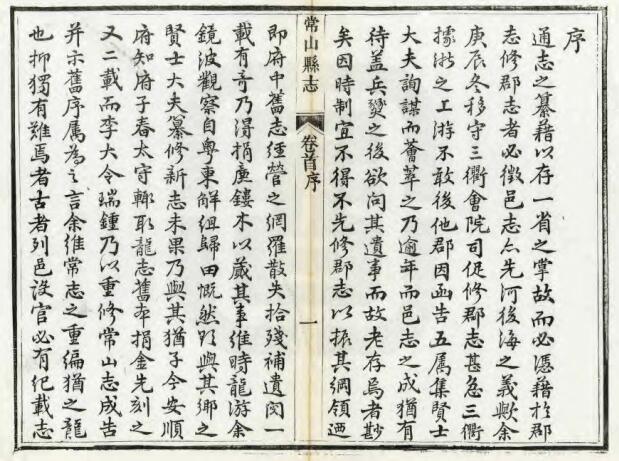 序
通志之纂藉以存一省之掌故而必憑藉於郡
志修郡志者必徵邑志亦先河後海之義歟余
庚辰冬移守三衢會院司促修郡志甚急三衢
據浙之上游不敢後他郡因函告五屬集賢士
大夫詢謀而薈萃之乃逾年而邑志之成猶有
待蓋兵燹之後欲問其遺事而故老存焉者尠
矣因時制宜不得不先修郡志以振其綱領迺
常山縣志
卷首序
一
即府中舊志經營之網羅散失拾殘補遺閱一
載有奇乃得捐廉鏤木以蕆其事維時龍游余
鏡波觀察自粵東解組歸田慨然欲與其鄉之
賢士大夫纂修新志未果乃與其猶子今安順
府知府子春太守輒取龍志舊本捐金先刻之
又二載而李大令瑞鍾乃以重修常山志成告
并示舊序屬為之言余維常志之重編猶之龍
也抑獨有難焉者古者列邑設官必有紀載志